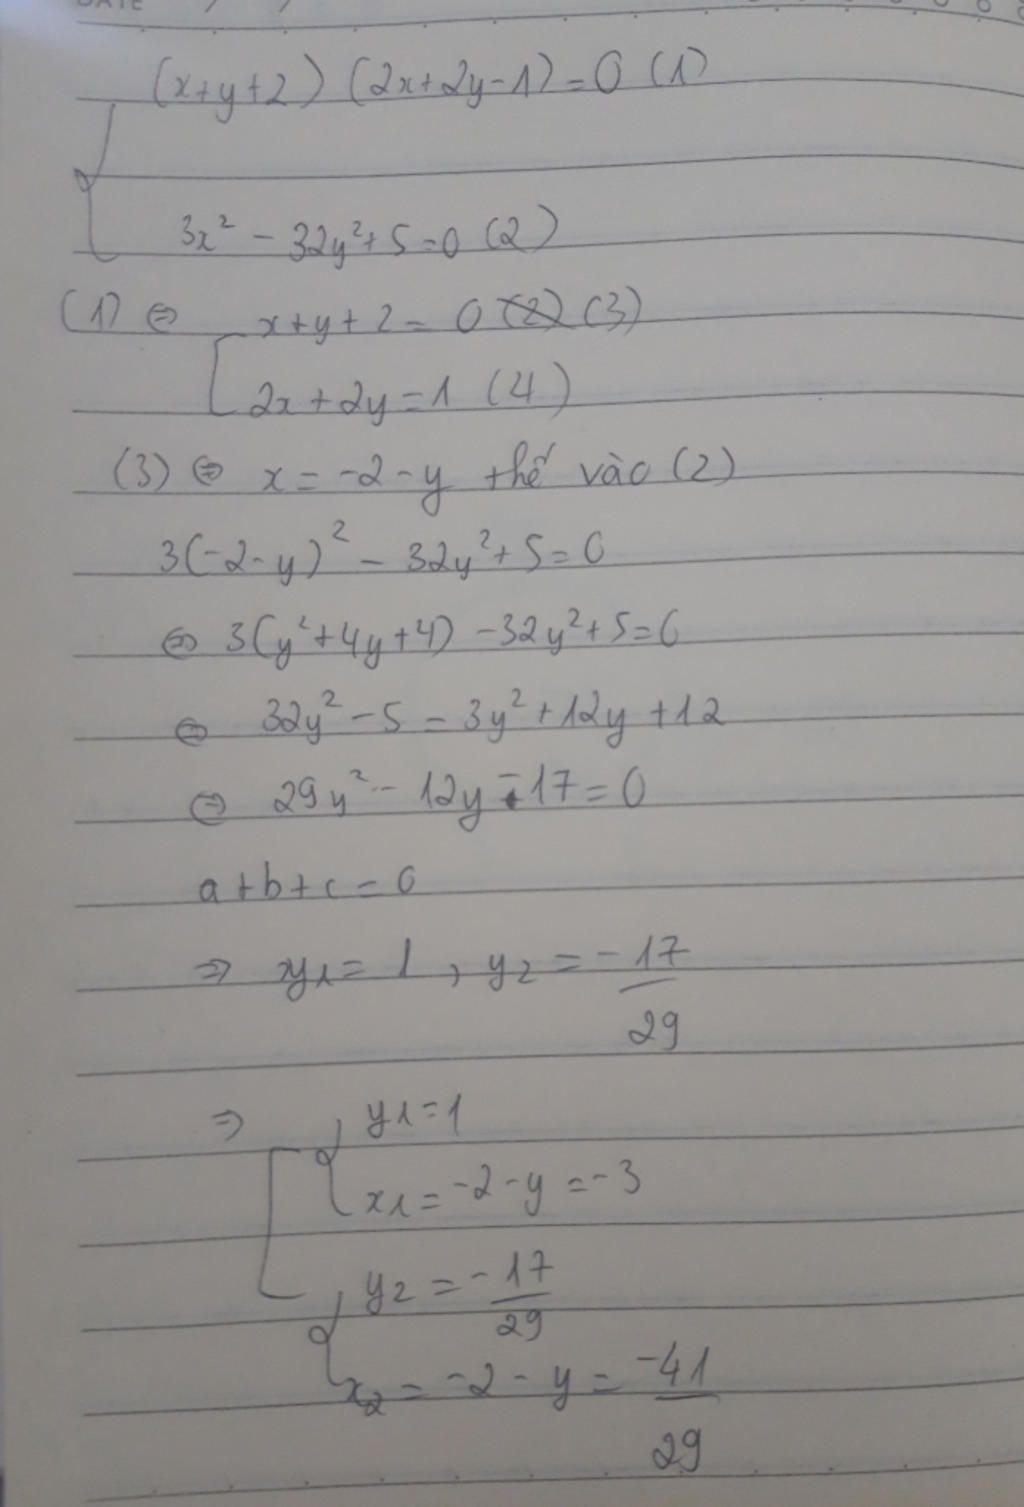 DATE
(x+y+2) (2x+2y-1)=0 (1)
3x² - 32y²+5=0 (2)
(1) ⇔ x+y+2=0 (2) (3)
2x+2y=1 (4)
(3) ⇔ x=-2-y thế vào (2)
3(-2-y)² - 32y²+5=0
⇔ 3(y²+4y+4) -32y²+5=0
⇔ 32y²-5=3y²+12y+12
⇔ 29y²-12y-17=0
a+b+c=0
⇒ y1=1, y2=-17/29
⇒ y1=1
x1=-2-y=-3
y2=-17/29
x2=-2-y=-41/29